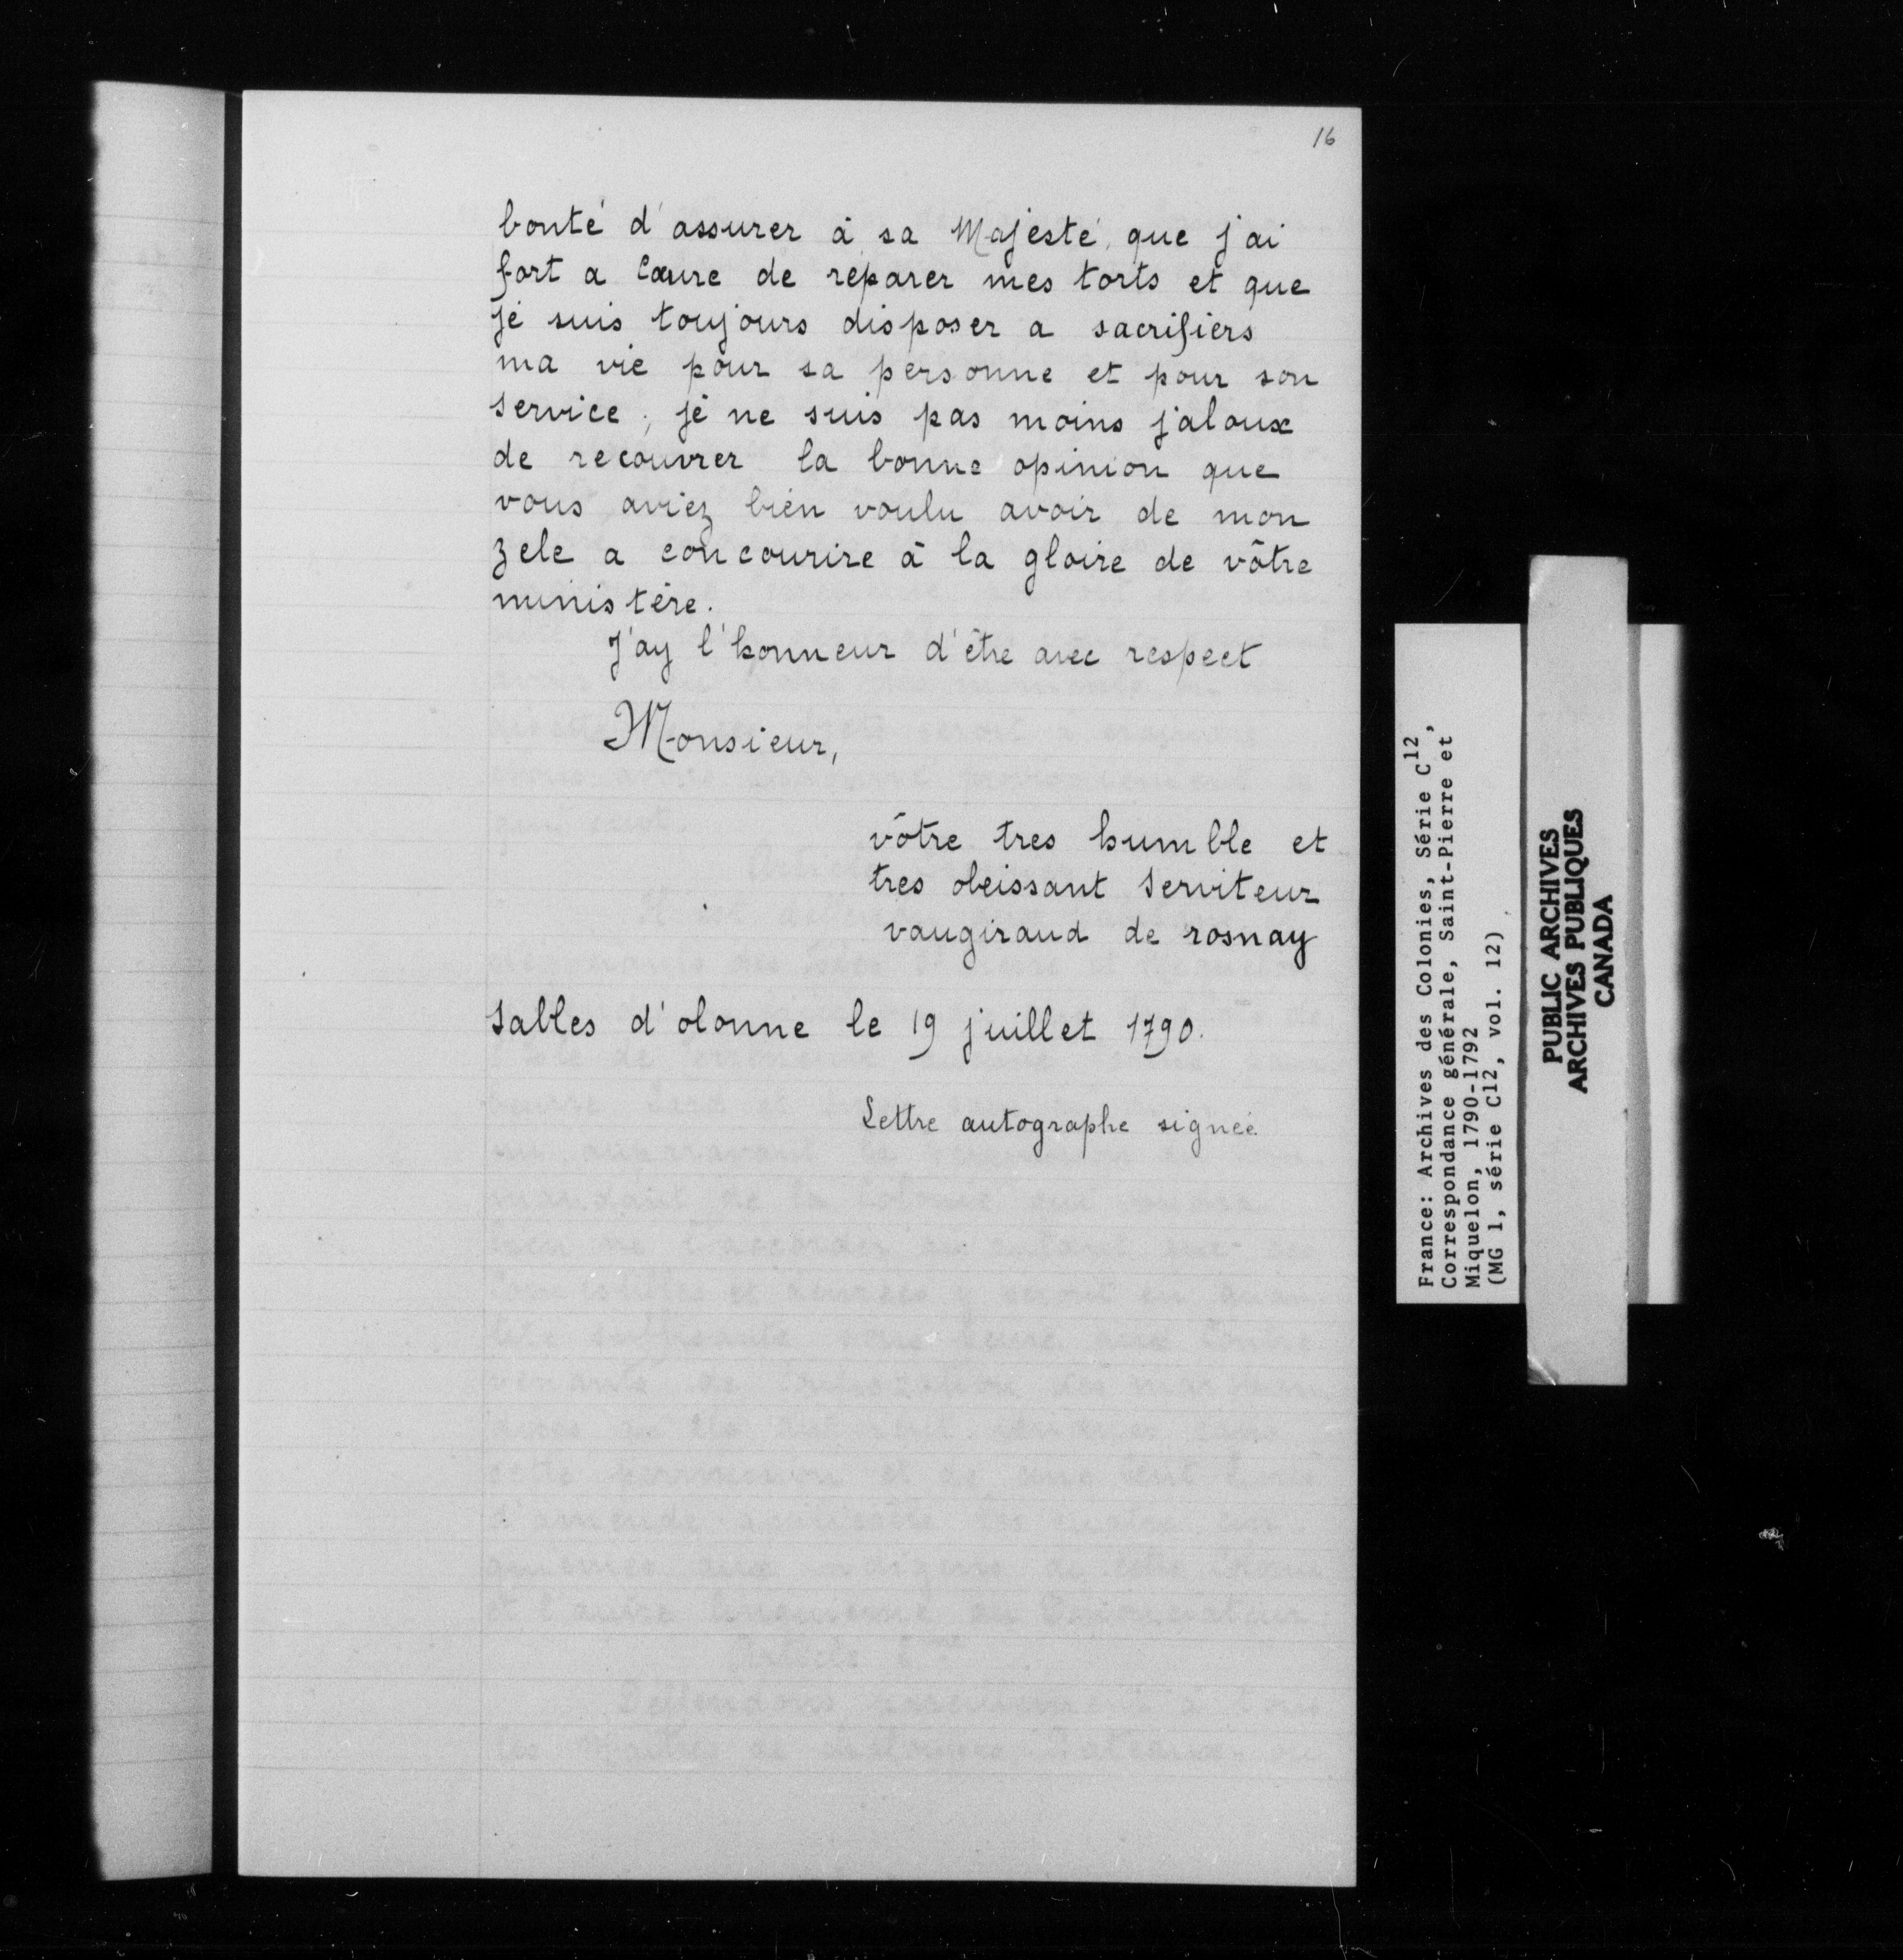 16
bonté d'assurer à sa Majesté, que j'ai
fort a Cœure de réparer mes torts et que
je suis toujours disposer a sacrifiers
ma vie pour sa personne et pour son
service, je ne suis pas moins jaloux
de recouvrer la bonne opinion que
vous aviez bien voulu avoir de mon
zele a concourire à la gloire de vôtre
ministère.
J'ay l'honneur d'être avec respect
Monsieur,
vôtre tres humble et
tres obeissant serviteur
vaugiraud de rosnay
Sables d'olonne le 19 juillet 1790.
Lettre autographe signée
France: Archives des Colonies, Série C12,
Correspondance générale, Saint-Pierre et
Miquelon, 1790-1792
(MG 1, série C12, vol. 12)
PUBLIC ARCHIVES
ARCHIVES PUBLIQUES
CANADA